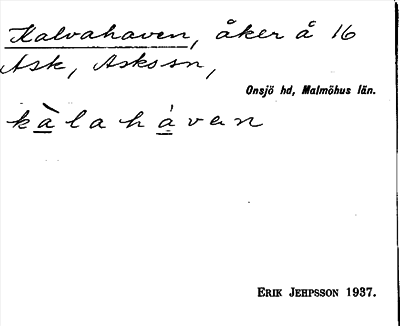 Kalvahaven, åker å 16
Ask, Askssn,
Onsjö hd, Malmöhus län.
kàlahàven
ERIK JEHPSSON 1937.